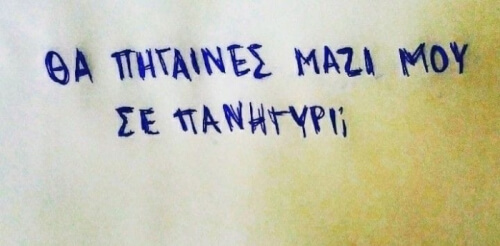 ΘΑ ΠΗΓΑΙΝΕΣ ΜΑΖΙ ΜΟΥ
ΣΕ ΠΑΝΗΓΥΡΙ;